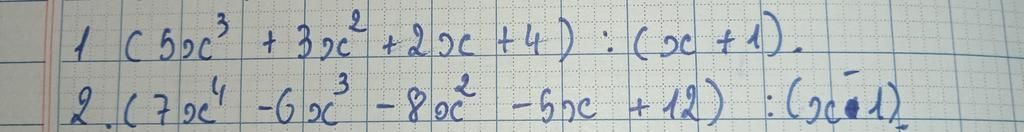 1 (5x³ + 3x² + 2x + 4) : (x + 1).
2. (7x⁴ - 6x³ - 8x² - 5x + 12) : (x - 1)